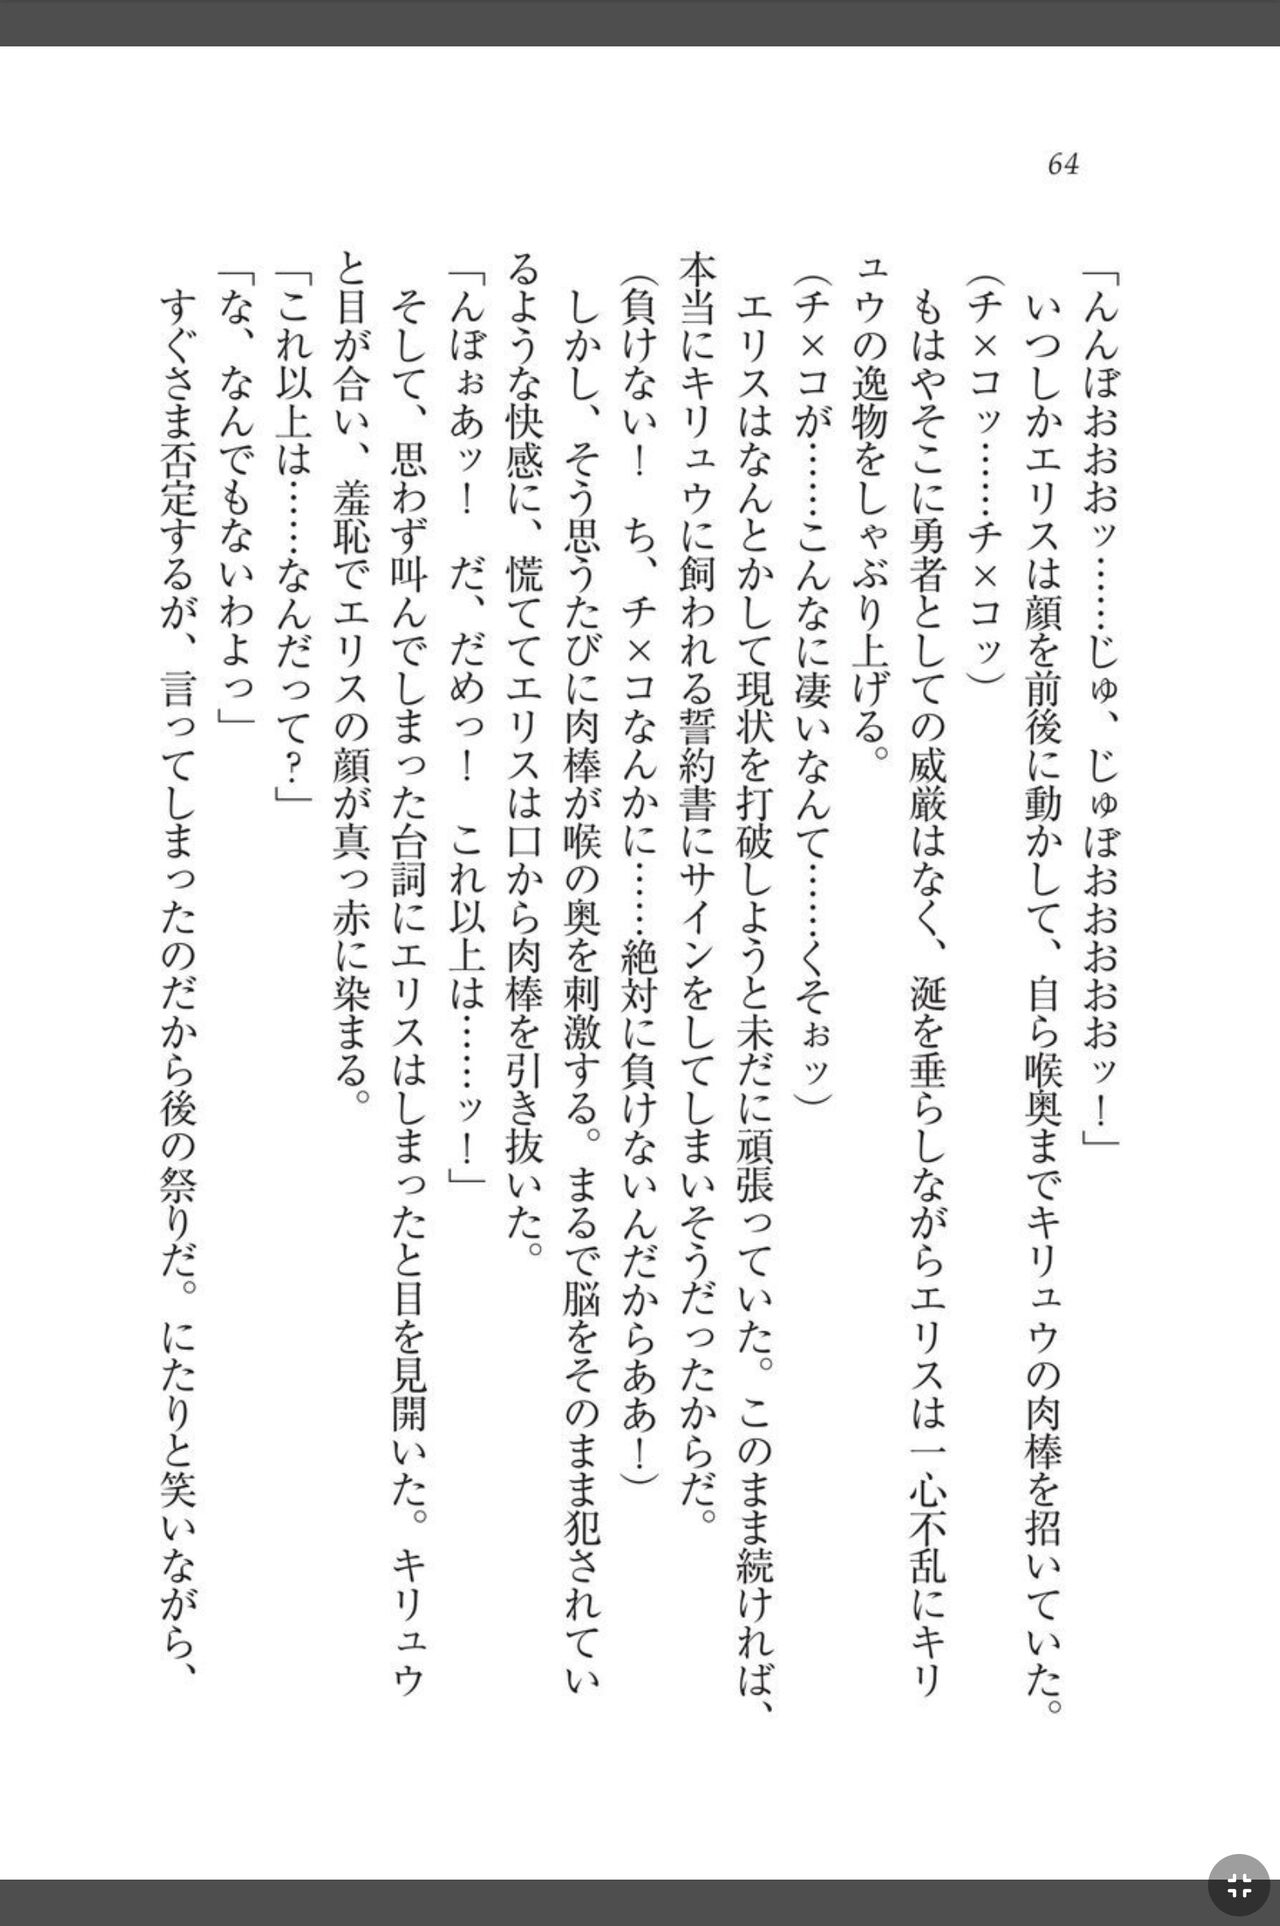 64
「んんぼおおおッ……じゅ、じゅぼおおおおおッ！」
　いつしかエリスは顔を前後に動かして、自ら喉奥までキリュウの肉棒を招いていた。
（チ×コッ……チ×コッ）
　もはやそこに勇者としての威厳はなく、涎を垂らしながらエリスは一心不乱にキリ
ュウの逸物をしゃぶり上げる。
（チ×コが……こんなに凄いなんて……くそぉッ）
　エリスはなんとかして現状を打破しようと未だに頑張っていた。このまま続ければ、
本当にキリュウに飼われる誓約書にサインをしてしまいそうだったからだ。
（負けない！　ち、チ×コなんかに……絶対に負けないんだからああ！）
　しかし、そう思うたびに肉棒が喉の奥を刺激する。まるで脳をそのまま犯されてい
るような快感に、慌ててエリスは口から肉棒を引き抜いた。
「んぼぉあッ！　だ、だめっ！　これ以上は……ッ！」
　そして、思わず叫んでしまった台詞にエリスはしまったと目を見開いた。キリュウ
と目が合い、羞恥でエリスの顔が真っ赤に染まる。
「これ以上は……なんだって？」
「な、なんでもないわよっ」
　すぐさま否定するが、言ってしまったのだから後の祭りだ。にたりと笑いながら、